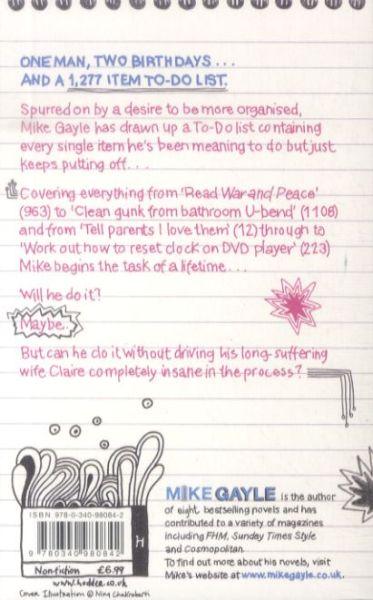 ONE MAN, TWO BIRTHDAYS...
AND A 1,277 ITEM TO-DO LIST.
Spurred on by a desire to be more organised,
Mike Gayle has drawn up a To-Do list containing
every single item he's been meaning to do but just
keeps putting off...
Covering everything from 'Read War and Peace'
(963) to 'Clean gunk from bathroom U-bend' (1108)
and from 'Tell parents I love them' (12) through to
'Work out how to reset clock on DVD player' (223)
Mike begins the task of a lifetime...
Will he do it?
Maybe...
But can he do it without driving his long-suffering
wife Claire completely insane in the process?
MIKE GAYLE is the author
of eight bestselling novels and has
contributed to a variety of magazines
including FHM, Sunday Times Style
and Cosmopolitan.
To find out more about his novels, visit
Mike's website at www.mikegayle.co.uk.
ISBN 978-0-340-98084-2
9 780340 980842
H
Non-fiction £6.99
www.hodder.co.uk
Cover Illustration © Nina Chakrabarti